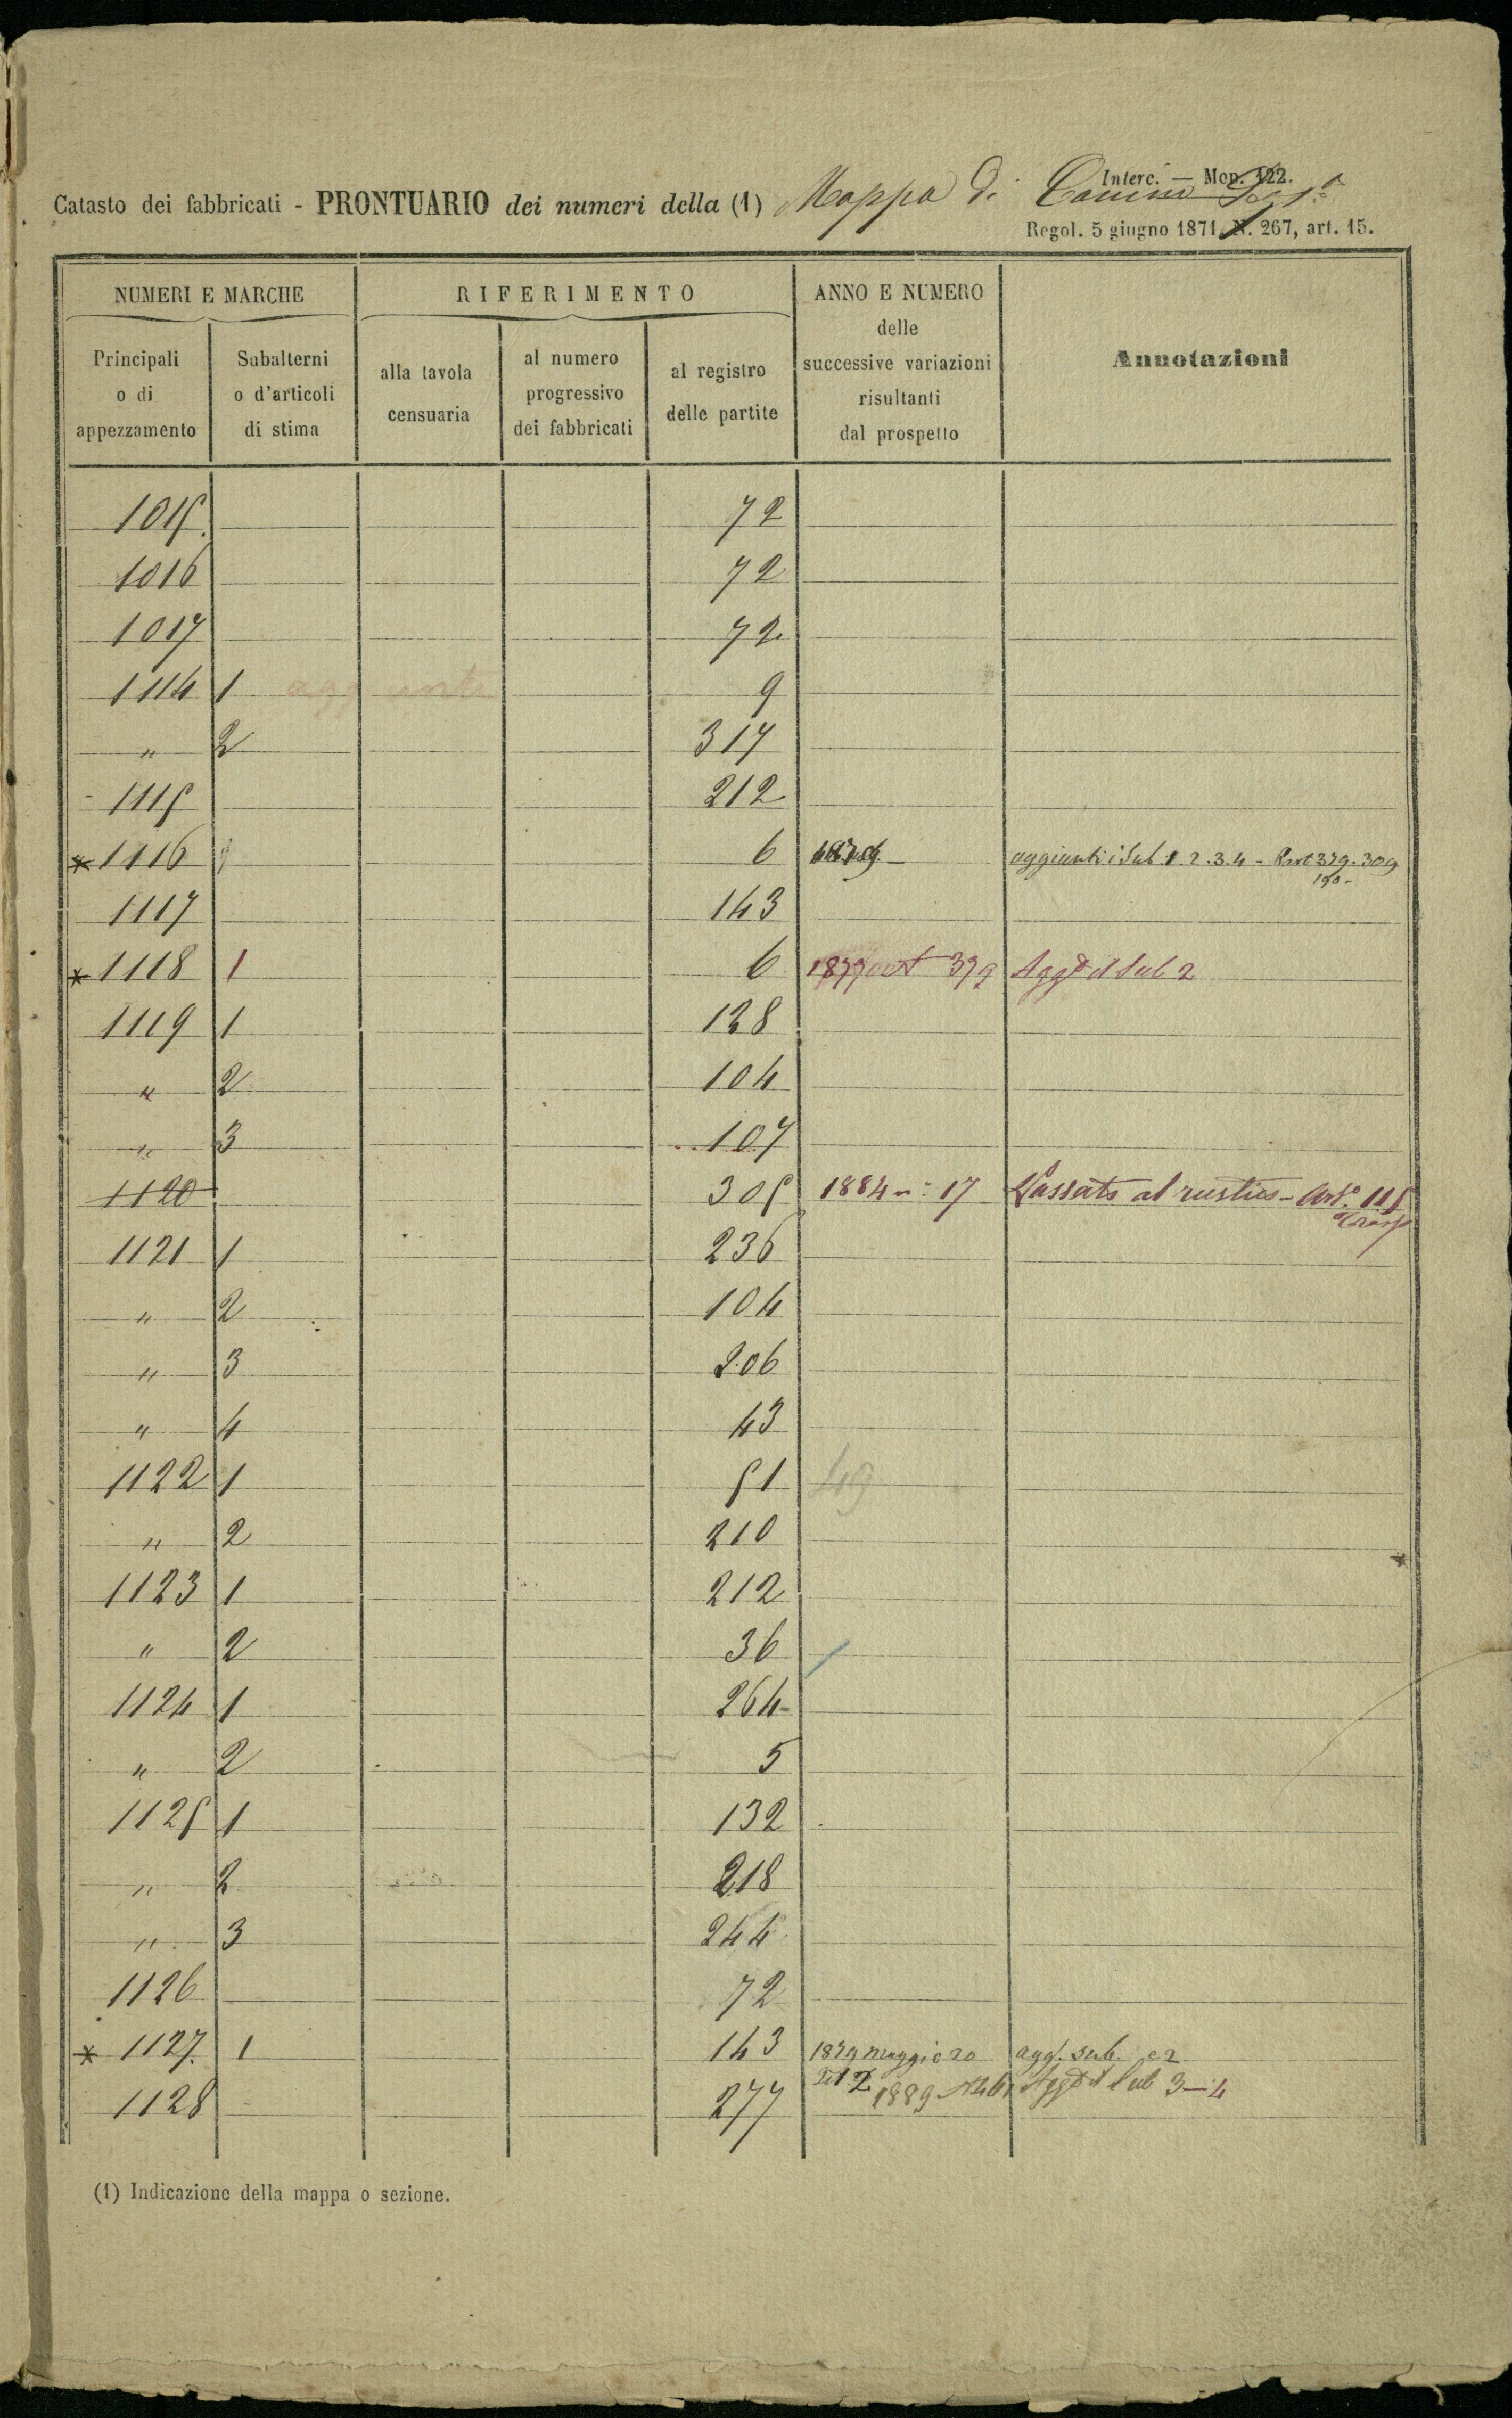 Interc. — Mod. 122.
Catasto dei fabbricati - PRONTUARIO dei numeri della (1) Mappa di Canino
Regol. 5 giugno 1871, N. 267, art. 15.
NUMERI E MARCHE RIFERIMENTO ANNO E NUMERO delle successive variazioni risultanti dal prospetto Annotazioni
Principali o di appezzamento Subalterni o d'articoli di stima alla tavola censuaria al numero progressivo dei fabbricati al registro delle partite
1015 72
1016 72
1017 72
1114 1 aggiunte 9
" 2 317
1115 212
* 1116 6 aggiunti i Sub. 1 2.3.4 - Part 379. 309
190-
1117 143
* 1118 1 6 379 Aggto il Sub 2
1119 1 128
" 2 104
" 3 107
1120 305 1884 n: 17 Passato al rustico - Art.° 115
Trasp
1121 1 236
" 2 104
" 3 206
" 4 43
1122 1 51 49
" 2 210
1123 1 212
" 2 36
1124 1 264
" 2 5
1125 1 132
" 2 218
" 3 244
1126 72
* 1127 1 143 1879 maggio 20 agg. sub. e 2
1128 277 1889 Aggto il Sub 3-4
(1) Indicazione della mappa o sezione.